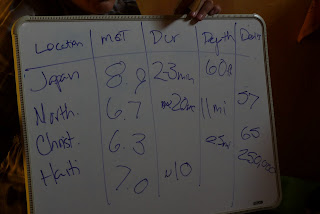 Location MGT Dur Depth Death
Japan 8.9 23min 60ft
North. 6.7 20sec 11mi 57
Christ. 6.3 65
Haiti 7.0 ~10 250,000